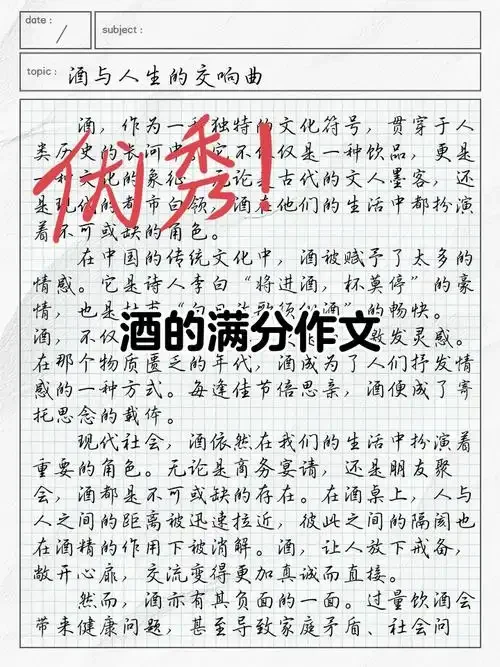 date :
subject :
topic : 酒与人生的交响曲
酒，作为一种独特的文化符号，贯穿于人
类历史的长河中，它不仅仅是一种饮品，更是
一种文化的象征。无论是古代的文人墨客，还
是现代的都市白领，酒在他们的生活中都扮演
着不可或缺的角色。
优秀！
在中国的传统文化中，酒被赋予了太多的
情感。它是诗人李白“将进酒，杯莫停”的豪
情，也是杜甫“白日放歌须纵酒”的畅快。
酒的满分作文
酒，不仅 激发灵感。
在那个物质匮乏的年代，酒成为了人们抒发情
感的一种方式。每逢佳节倍思亲，酒便成了寄
托思念的载体。
现代社会，酒依然在我们的生活中扮演着
重要的角色。无论是商务宴请，还是朋友聚
会，酒都是不可或缺的存在。在酒桌上，人与
人之间的距离被迅速拉近，彼此之间的隔阂也
在酒精的作用下被消解。酒，让人放下戒备，
敞开心扉，交流变得更加真诚而直接。
然而，酒亦有其负面的一面。过量饮酒会
带来健康问题，甚至导致家庭矛盾、社会问